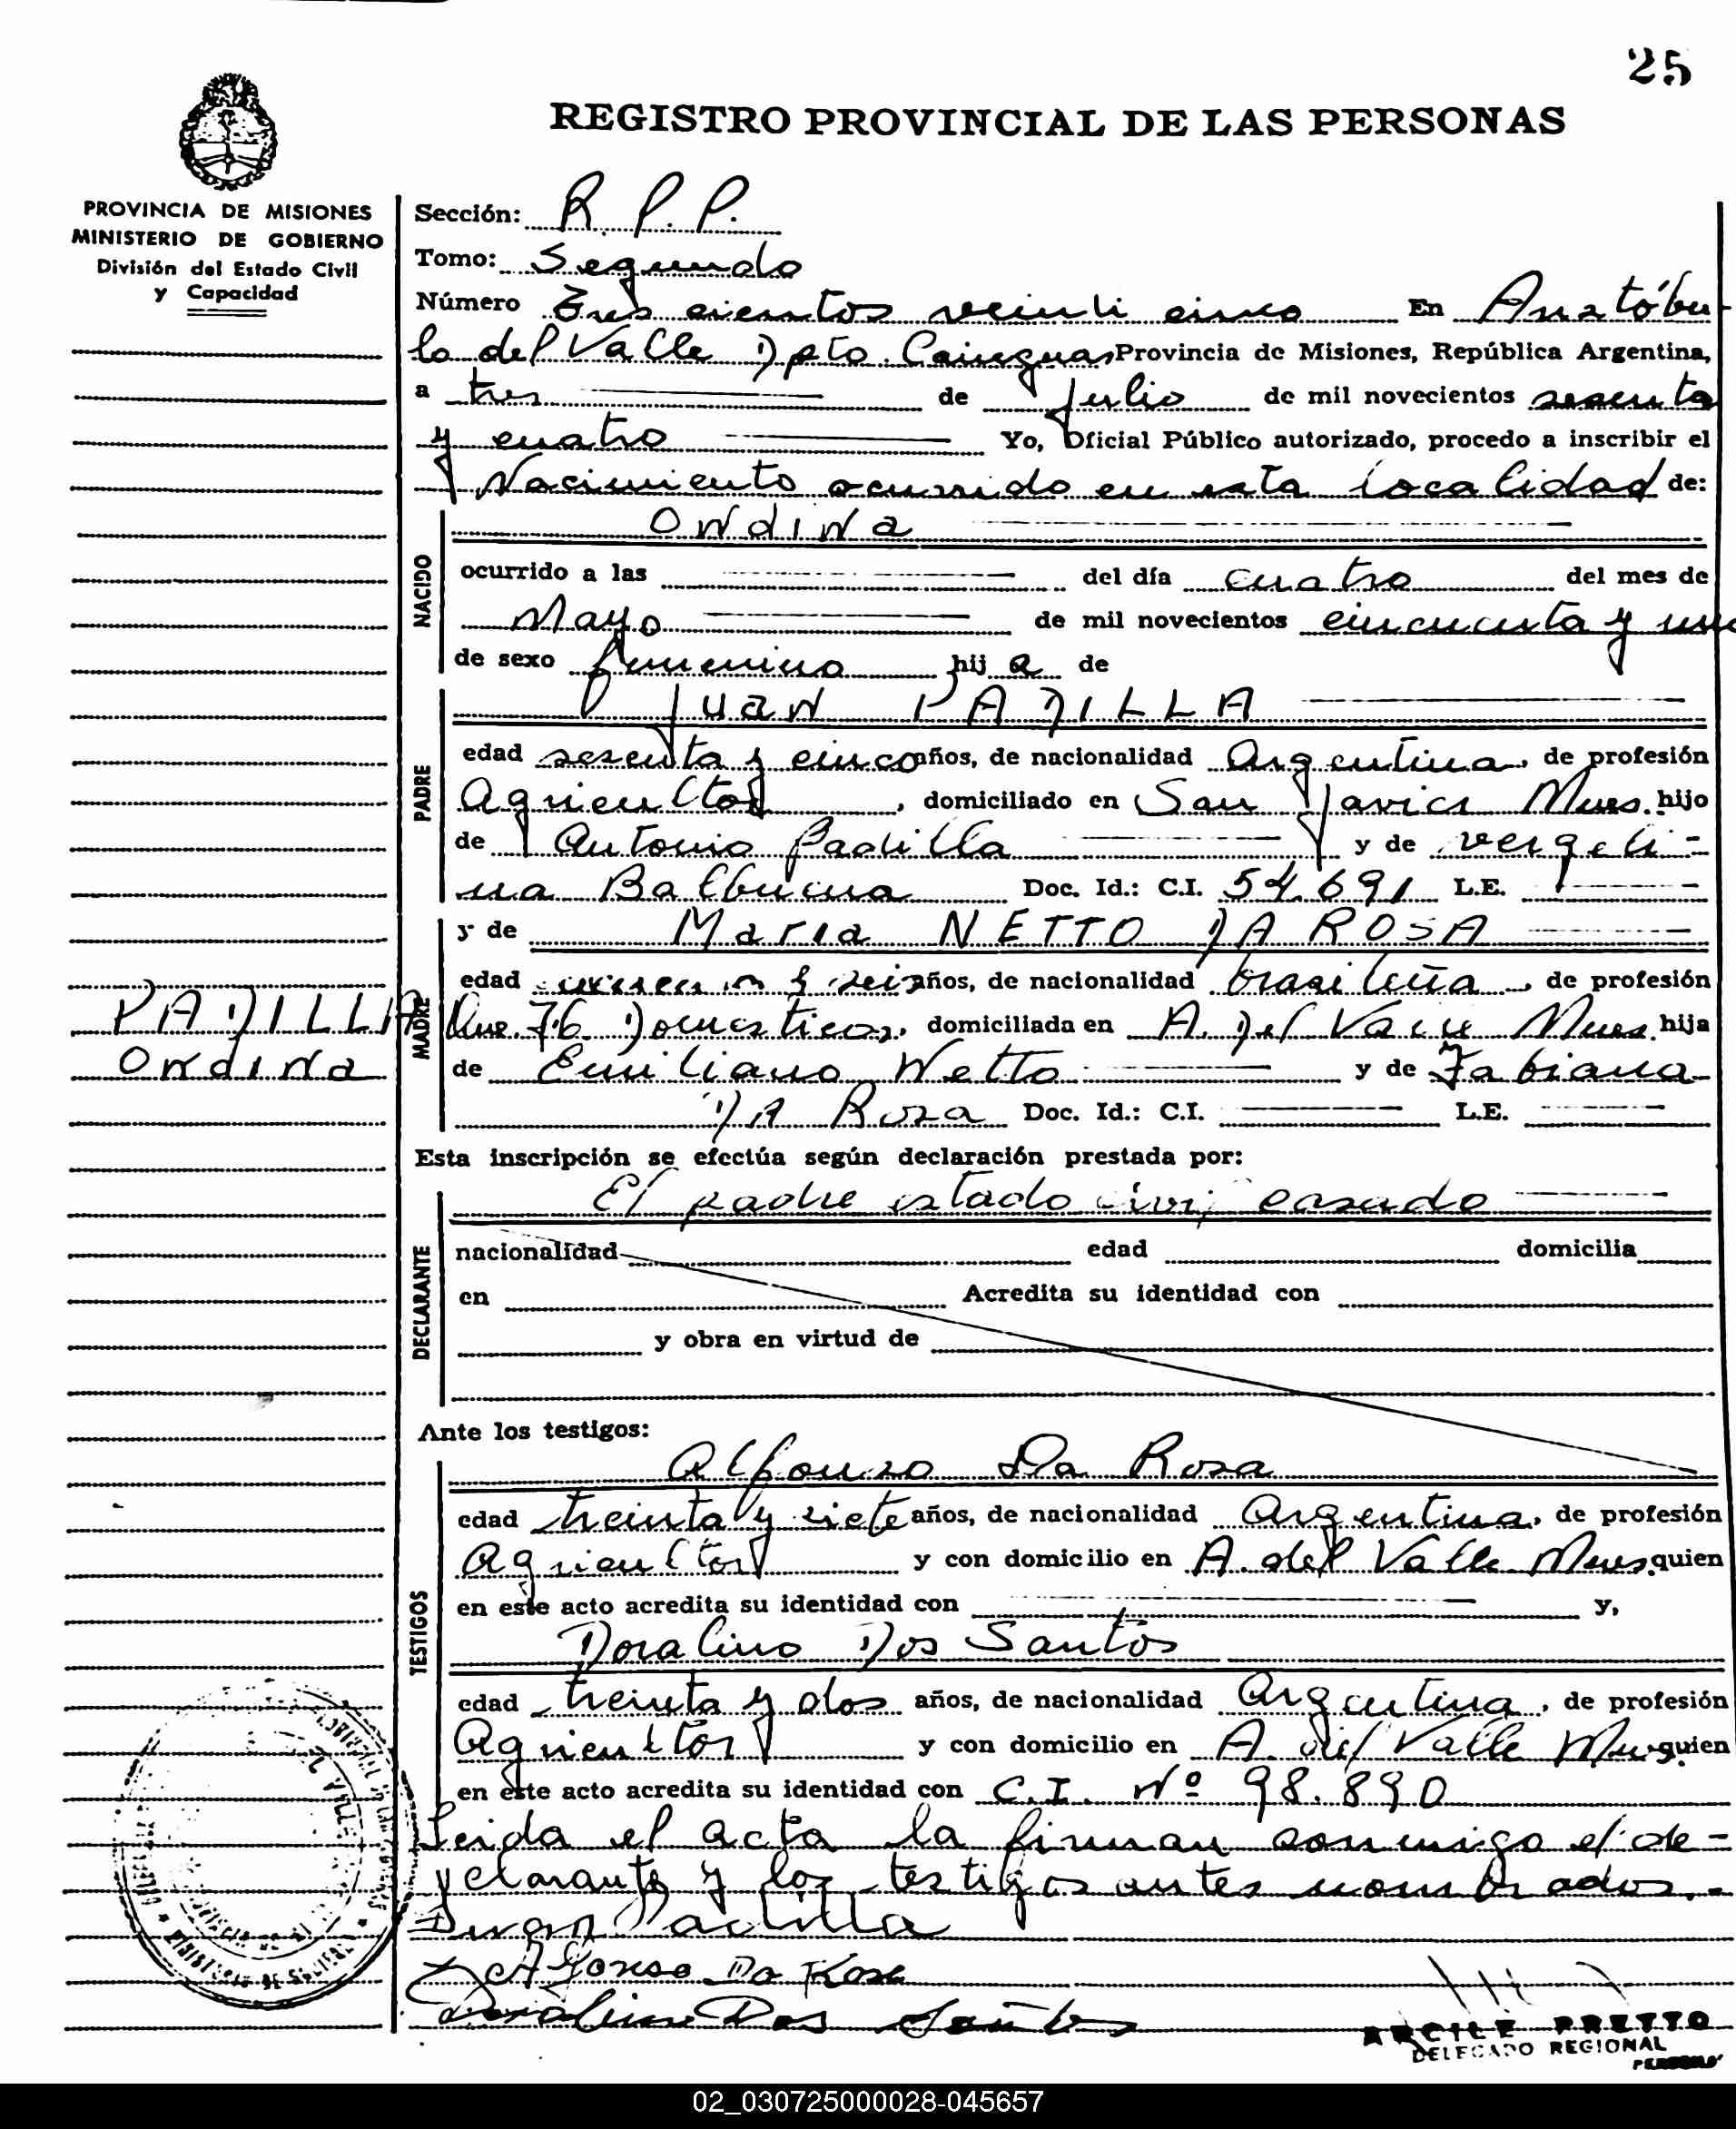 25
REGISTRO PROVINCIAL DE LAS PERSONAS
PROVINCIA DE MISIONES
MINISTERIO DE GOBIERNO
División del Estado Civil
y Capacidad
Sección: R. P. P.
Tomo: Segundo
Número Tres cientos veinti cinco En Aristóbu-
lo del Valle Dpto. Cainguas Provincia de Misiones, República Argentina,
a tres de Julio de mil novecientos sesenta
y cuatro Yo, Oficial Público autorizado, procedo a inscribir el
Nacimiento ocurrido en esta localidad de:
NACIDO
Ondina
ocurrido a las del día cuatro del mes de
Mayo de mil novecientos cincuenta y uno
de sexo femenino hij a de
PADRE
Juan PADILLA
edad sesenta y cinco años, de nacionalidad Argentina, de profesión
Agricultor, domiciliado en San Javier Mnes. hijo
de Antonio Padilla y de Vergeli-
na Balbuena Doc. Id.: C.I. 54.691 L.E.
MADRE
y de Maria NETTO DA ROSA
edad y seis años, de nacionalidad brasileña, de profesión
PADILLA
Ondina
Que. 76. Domesticos, domiciliada en A. Del Valle Mnes. hija
de Emiliano Netto y de Fabiana
DA Rosa Doc. Id.: C.I. L.E.
Esta inscripción se efectúa según declaración prestada por:
DECLARANTE
El padre estado civil casado
nacionalidad edad domicilia
en Acredita su identidad con
y obra en virtud de
Ante los testigos:
TESTIGOS
Alfonso Da Rosa
edad treinta y siete años, de nacionalidad Argentina, de profesión
Agricultor y con domicilio en A. del Valle Mnes. quien
en este acto acredita su identidad con y,
Doralino Dos Santos
edad treinta y dos años, de nacionalidad Argentina, de profesión
Agricultor y con domicilio en A. del Valle Mnes. quien
en este acto acredita su identidad con C.I. Nº 98.890
Leida el acta la firman conmigo el de-
clarante y los testigos antes nombrados.-
Juan Padilla
Alfonso Da Rosa
Doralino Dos Santos
ARCILE PRETTO
DELEGADO REGIONAL
02_030725000028-045657